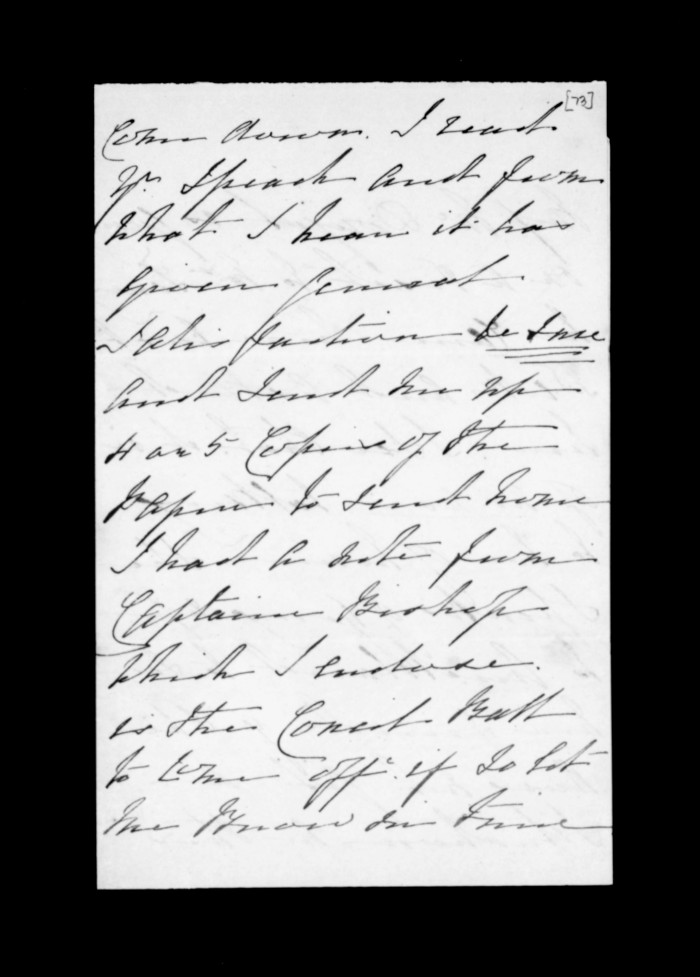 [73]
Come down. I read
Yr. Speach and from
What I hear it has
given general
Satisfaction be sure
and Send me up
4 or 5 Copies of the
Paper to send home
I had a note from
Captain Bishop
Which I enclose.
is the Ball
to Come off. if So let
me Know in time